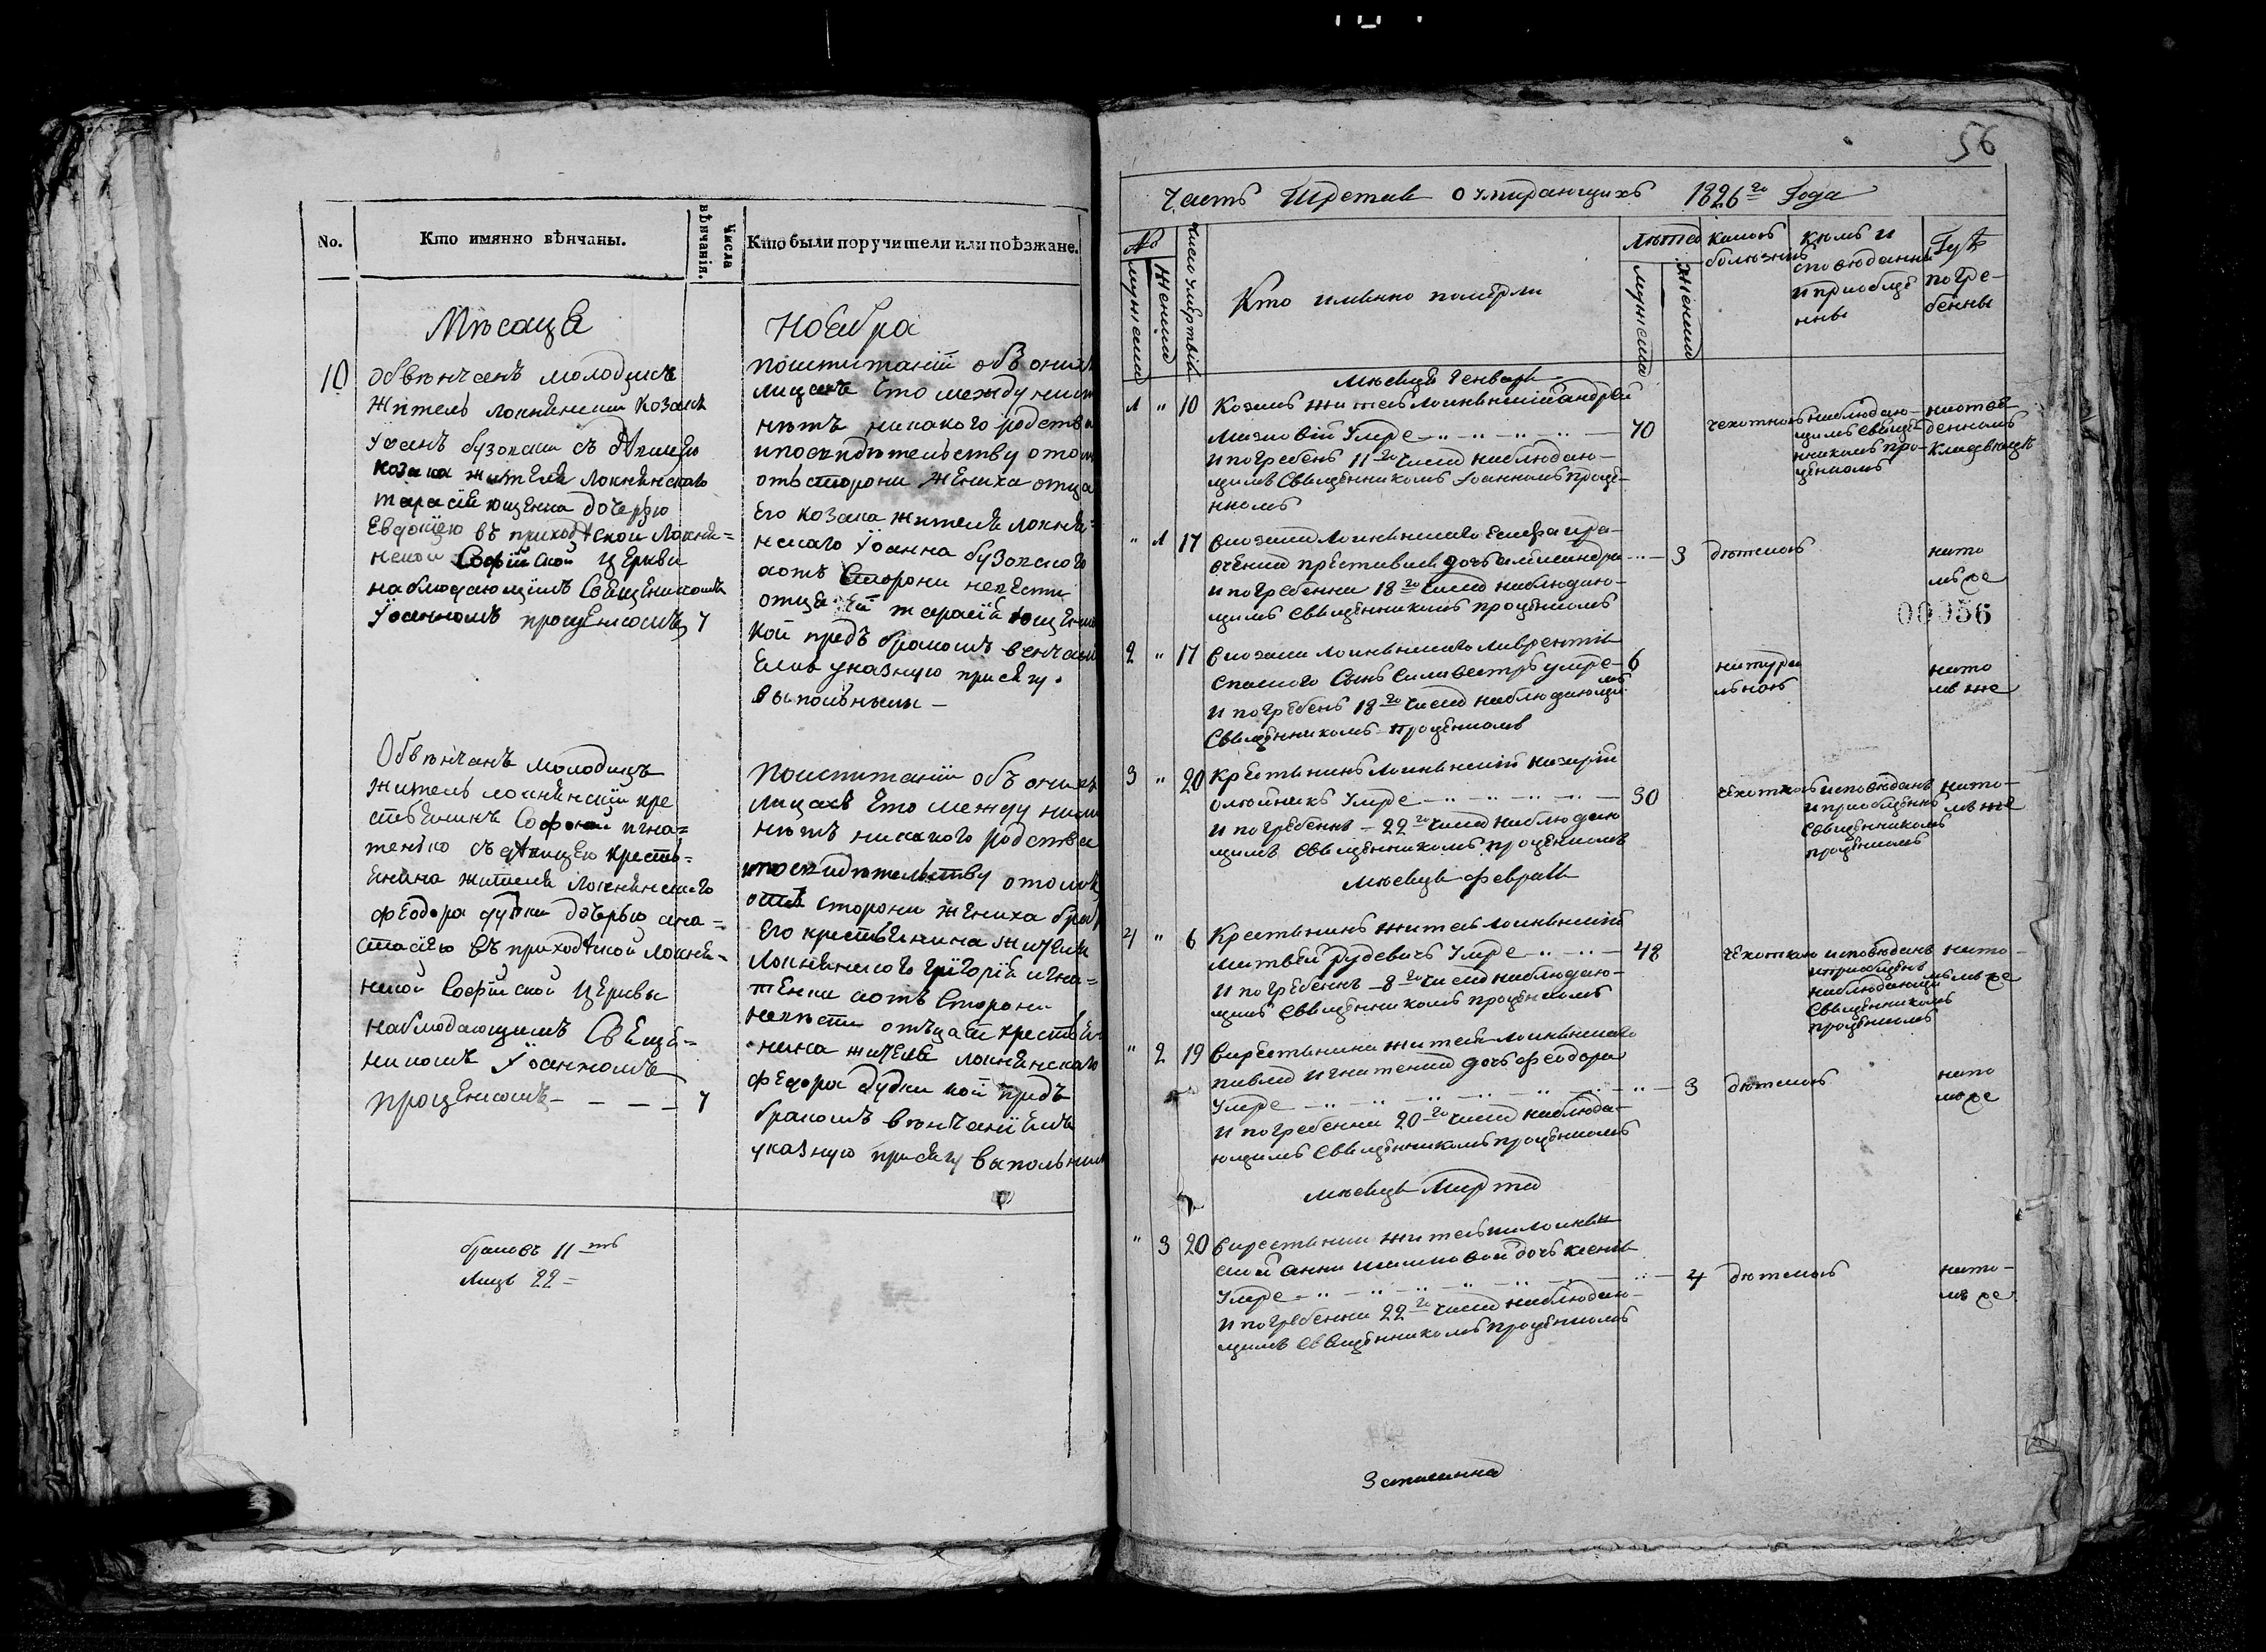 No.
Кто имянно вѣнчаны.
Числа вѣнчанія.
Кто были поручители или поѣзжане.
Мѣсяца
Ноября
10
обвѣнчанъ молодикъ
житель локнянскии козакъ
Іоанъ бузовски съ дѣвицею
козака жителя локнянскаго
тарасія ющенка дочерью
Евдокіею въ приходской локня=
нской Софійской церкви
наблюдающимъ Священикомъ
Іоанномъ проценкомъ 7
поиспитаніи объ онихъ
лицахъ что между ними
нѣтъ никакого родства
ипосвидѣтельству отомъ
отъ сторони жениха отца
Его козака жителя локня=
нскаго Іоанна бузовского
аотъ Сторони невести
отца Ей тарасія ющен
кой предъ бракомъ венчані
Емъ указную присягу
выполънили –
Обвѣнчанъ молодикъ
житель локнянскіи кре
стьянинъ Софоній игна=
тенко съ дѣвицею кресть=
янина жителя локнянскаго
феодора дудки дочерью ана=
стасіею въ приходской локня=
нской Софійской церквы
наблюдающимъ Свяще=
никомъ Іоанномъ
проценкомъ – – – – 7
поиспитаніи объ онихъ
лицахъ что между ними
нѣтъ никакого родства
ипосвидѣтельству отомъ
отъ сторони жениха брат
Его крестьянина жителя
локнянского григорія игна=
тенка аотъ Сторони
невѣсти отъца Ей крестьян
нина жителя локнянскаго
федора дудки кой предъ
бракомъ вѣнчаніЕмъ
указную присягу выполънили
браковъ 11 ть
Лицъ 22 –
56
Часть Третая о умирающихъ 1826 го Года
№
мужеска
женска
число умертвій
Кто именно померли
Лѣта
мужеска
женска
какою болѣзнію
кѣмъ и сповѣданы и приобще нны
Гдѣ погре- бенны
Мѣсяцъ Генварь
1 " 10 Козакъ житель локнянскій андрей
Умре – 70 чехоткою
и погребенъ 11 го числа наблюдаю-
щимъ Священникомъ Іоанномъ проце-
нкомъ
наблюдаю- щимъ Священникомъ про- ценкомъ
наотве денномъ Кладвищѣ
" 1 17 Скозака локнянскаго
преставися дочь александра 3 дѣтскою
и погребенна 18 го числа наблюдаю-
щимъ Священникомъ проценкомъ
нато мъже
00056
2 " 17 Скозака локнянскаго лаврентія
Спаского Сынъ Силивестръ умре – 6 натура льною
и погребенъ 18 го числа наблюдающи мъ
Священникомъ проценкомъ
нато мъ же
3 " 20 Крестянинъ локнянскій назарій
олѣйникъ Умре – 30 чехоткою
и погребенъ – 22 го числа наблюдаю
щимъ Священникомъ проценкомъ
исповѣданъ и приобщенъ Священникомъ проценкомъ
нато- мъ же
Мѣсяцъ февраль
4 " 6 Крестянинъ житель локнянскій
матвей рудевичъ Умре – 48 чехоткою
и погребенъ – 8 го числа наблюдаю-
щимъ Священникомъ проценкомъ
исповѣданъ и приобщенъ наблюдающимъ Священникомъ проценкомъ
нато- мъже
" 2 19 Скрестянина жителя локнянскаго
павла игнатенка дочь феодора
Умре – 3 дѣтскою
и погребенна 20 го числа наблюда-
ющимъ Священникомъ проценкомъ
нато мъже
Мѣсяцъ Марта
" 3 20 Скрестянки жительки локнян
ской анни дочь ксенія
Умре – 4 дѣтскою
и погребенна 22 го числа наблюдаю-
щимъ Священникомъ проценкомъ
нато- мъ же